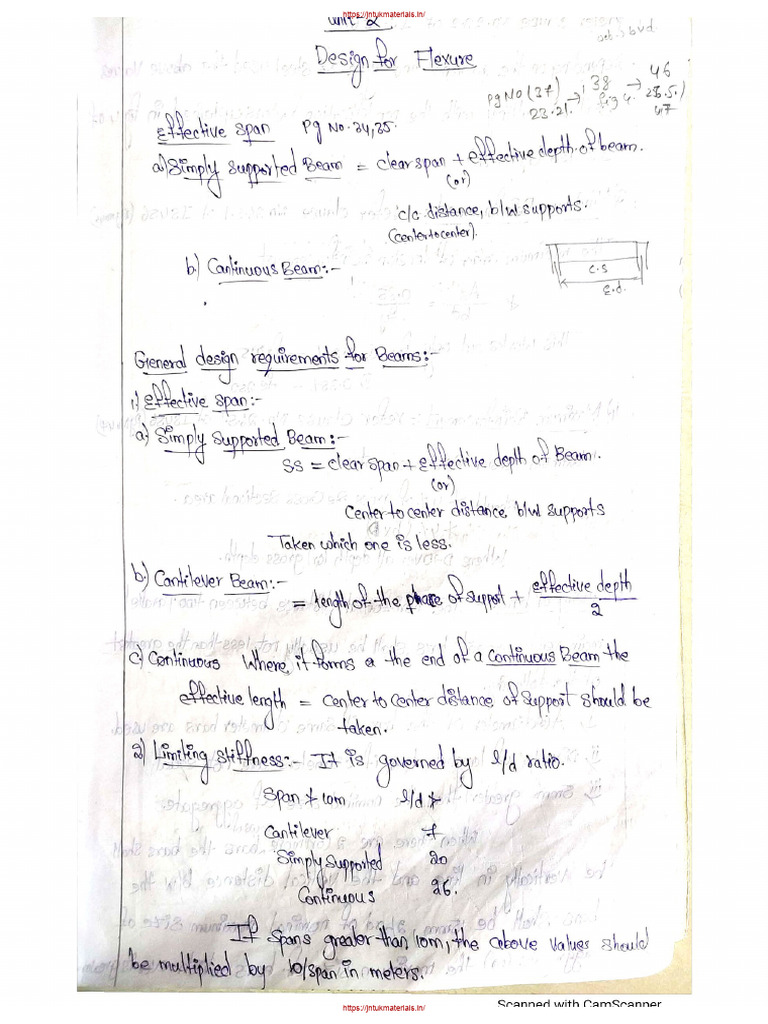 https://jntukmaterials.in/
unit-2
Design for Flexure
Pg No (37) → 38 → 46
23.21. fig 4. (26.5.)
47
Effective span Pg No. 34,35.
a) Simply supported Beam = clear span + effective depth of beam.
(or)
c/c distance, b/w supports.
(center to center).
b) Continuous Beam:-
c.s
E.d.
General design requirements for Beams:-
1) Effective span:-
a) Simply supported Beam:-
SS = clear span + Effective depth of Beam.
(or)
Center to center distance b/w supports
Taken which one is less.
b) Cantilever Beam:-
= length of the phace of support + effective depth
2
c) Continuous Where it forms a the end of a continuous Beam the
effective length = center to center distance of support should be
taken.
2) Limiting stiffness:- It is governed by l/d ratio.
Span ≯ 10m l/d ≯
Cantilever 7
Simply supported 20
Continuous 26.
If spans greater than 10m, the above values should
be multiplied by 10/span in meters.
Scanned with CamScanner
https://jntukmaterials.in/